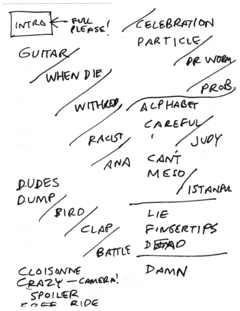 INTRO ← FULL PLEASE!
GUITAR
WHEN DIE
WITHRED
RACIST
ANA
DUDES
DUMP
BIRD
CLAP
BATTLE
CLOISONNE
CRAZY — CAMERA!
SPOILER
FREE RIDE
CELEBRATION
PARTICLE
DR WORM
PROB
ALPHABET
CAREFUL
JUDY
CAN'T
MESO
ISTANBUL
LIE
FINGERTIPS
DEAD
DAMN